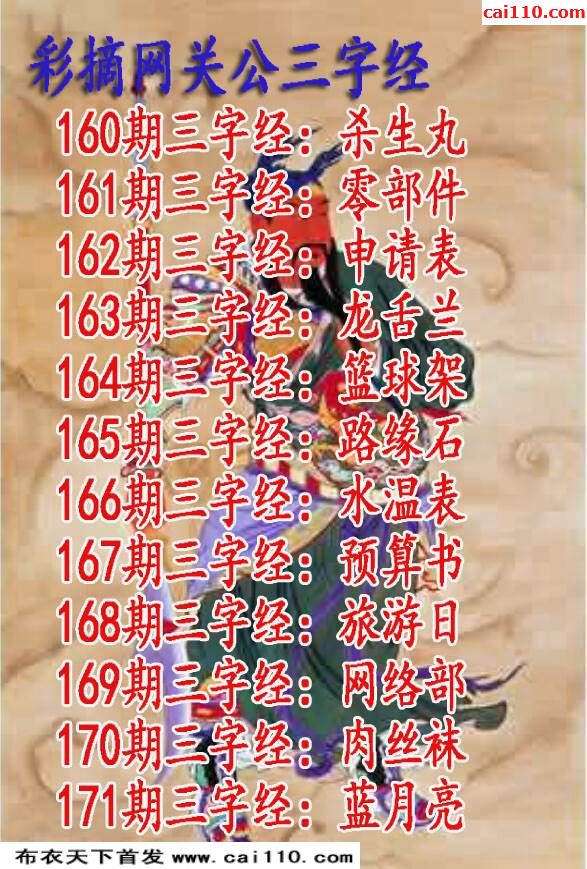 cai110.com
彩摘网关公三字经
160期三字经：杀生丸
161期三字经：零部件
162期三字经：申请表
163期三字经：龙舌兰
164期三字经：篮球架
165期三字经：路缘石
166期三字经：水温表
167期三字经：预算书
168期三字经：旅游日
169期三字经：网络部
170期三字经：肉丝袜
171期三字经：蓝月亮
布衣天下首发 www.cai110.com